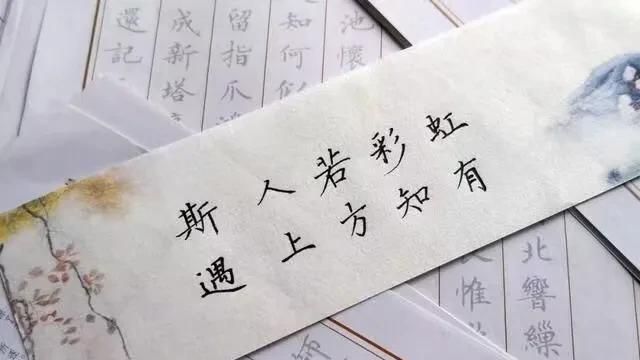 池懷
知何
留指爪
成新塔
還記
斯人若彩虹
遇上方知有
北響
惟
師